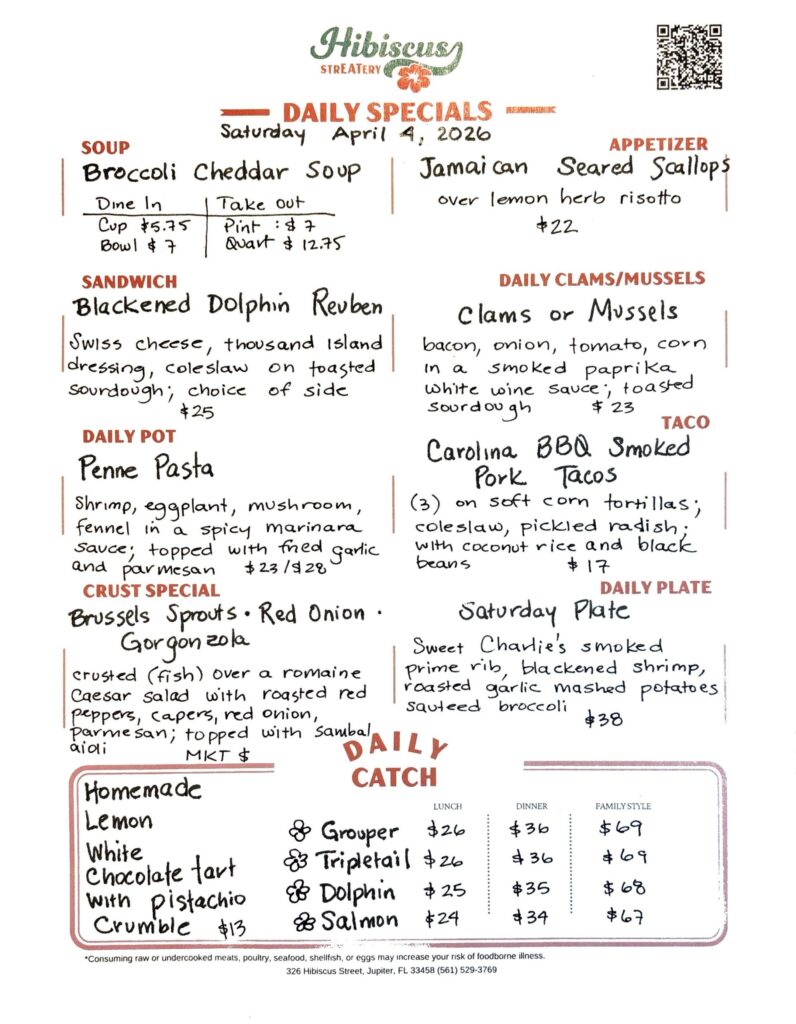 Hibiscus
STREATERY
DAILY SPECIALS
Saturday April 4, 2026
SOUP
Broccoli Cheddar Soup
Dine In | Take out
Cup $5.75 | Pint : $ 7
Bowl $ 7 | Quart $ 12.75
APPETIZER
Jamaican Seared Scallops
over lemon herb risotto
$22
SANDWICH
Blackened Dolphin Reuben
Swiss cheese, thousand island
dressing, coleslaw on toasted
sourdough; choice of side
$25
DAILY CLAMS/MUSSELS
Clams or Mussels
bacon, onion, tomato, corn
in a smoked paprika
white wine sauce; toasted
sourdough $ 23
DAILY POT
Penne Pasta
Shrimp, eggplant, mushroom,
fennel in a spicy marinara
sauce; topped with fried garlic
and parmesan $23/$28
TACO
Carolina BBQ Smoked
Pork Tacos
(3) on soft corn tortillas;
coleslaw, pickled radish;
with coconut rice and black
beans $ 17
CRUST SPECIAL
Brussels Sprouts • Red Onion •
Gorgonzola
crusted (fish) over a romaine
Caesar salad with roasted red
peppers, capers, red onion,
parmesan; topped with sambal
aioli MKT $
DAILY PLATE
Saturday Plate
Sweet Charlie's smoked
prime rib, blackened shrimp,
roasted garlic mashed potatoes
sauteed broccoli
$38
DAILY
CATCH
Homemade
Lemon
White
Chocolate tart
with pistachio
Crumble $13
LUNCH DINNER FAMILY STYLE
Grouper $26 $36 $69
Tripletail $26 $36 $69
Dolphin $25 $35 $68
Salmon $24 $34 $67
*Consuming raw or undercooked meats, poultry, seafood, shellfish, or eggs may increase your risk of foodborne illness.
326 Hibiscus Street, Jupiter, FL 33458 (561) 529-3769